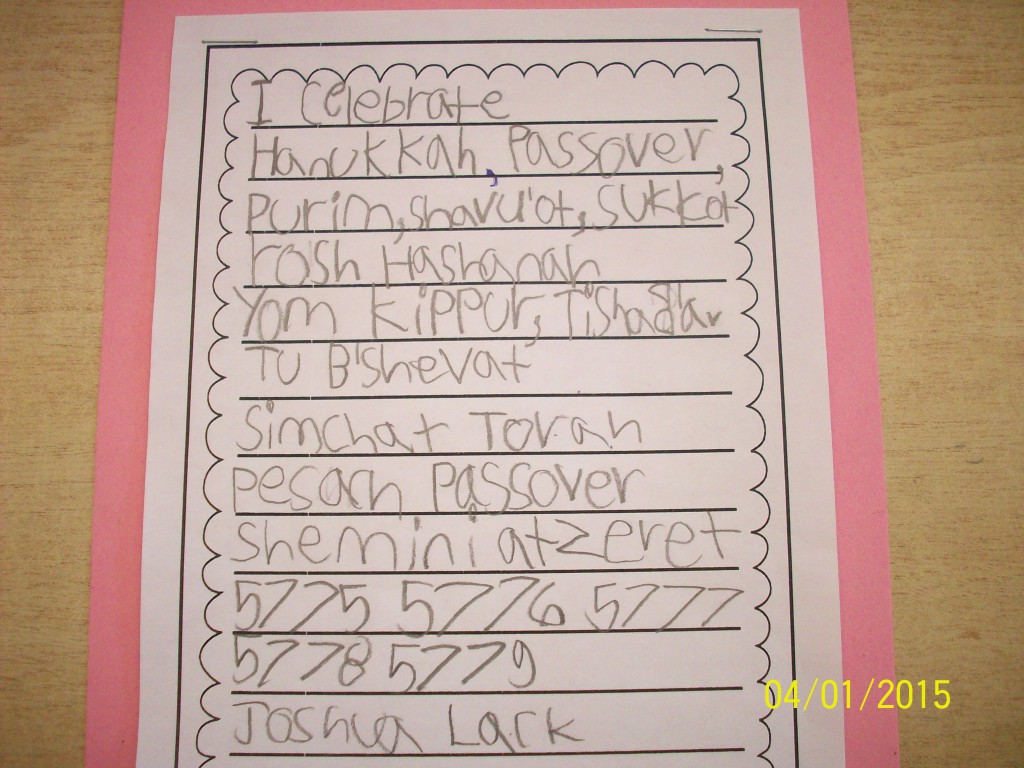 I Celebrate
Hanukkah, Passover,
Purim, shavu'ot, Sukkot
rosh Hashanah
Yom Kippur, Tisha
Tu B'shevat
Simchat Torah
pesach Passover
shemini atzeret
5775 5776 5777
5778 5779
Joshua Lark
04/01/2015